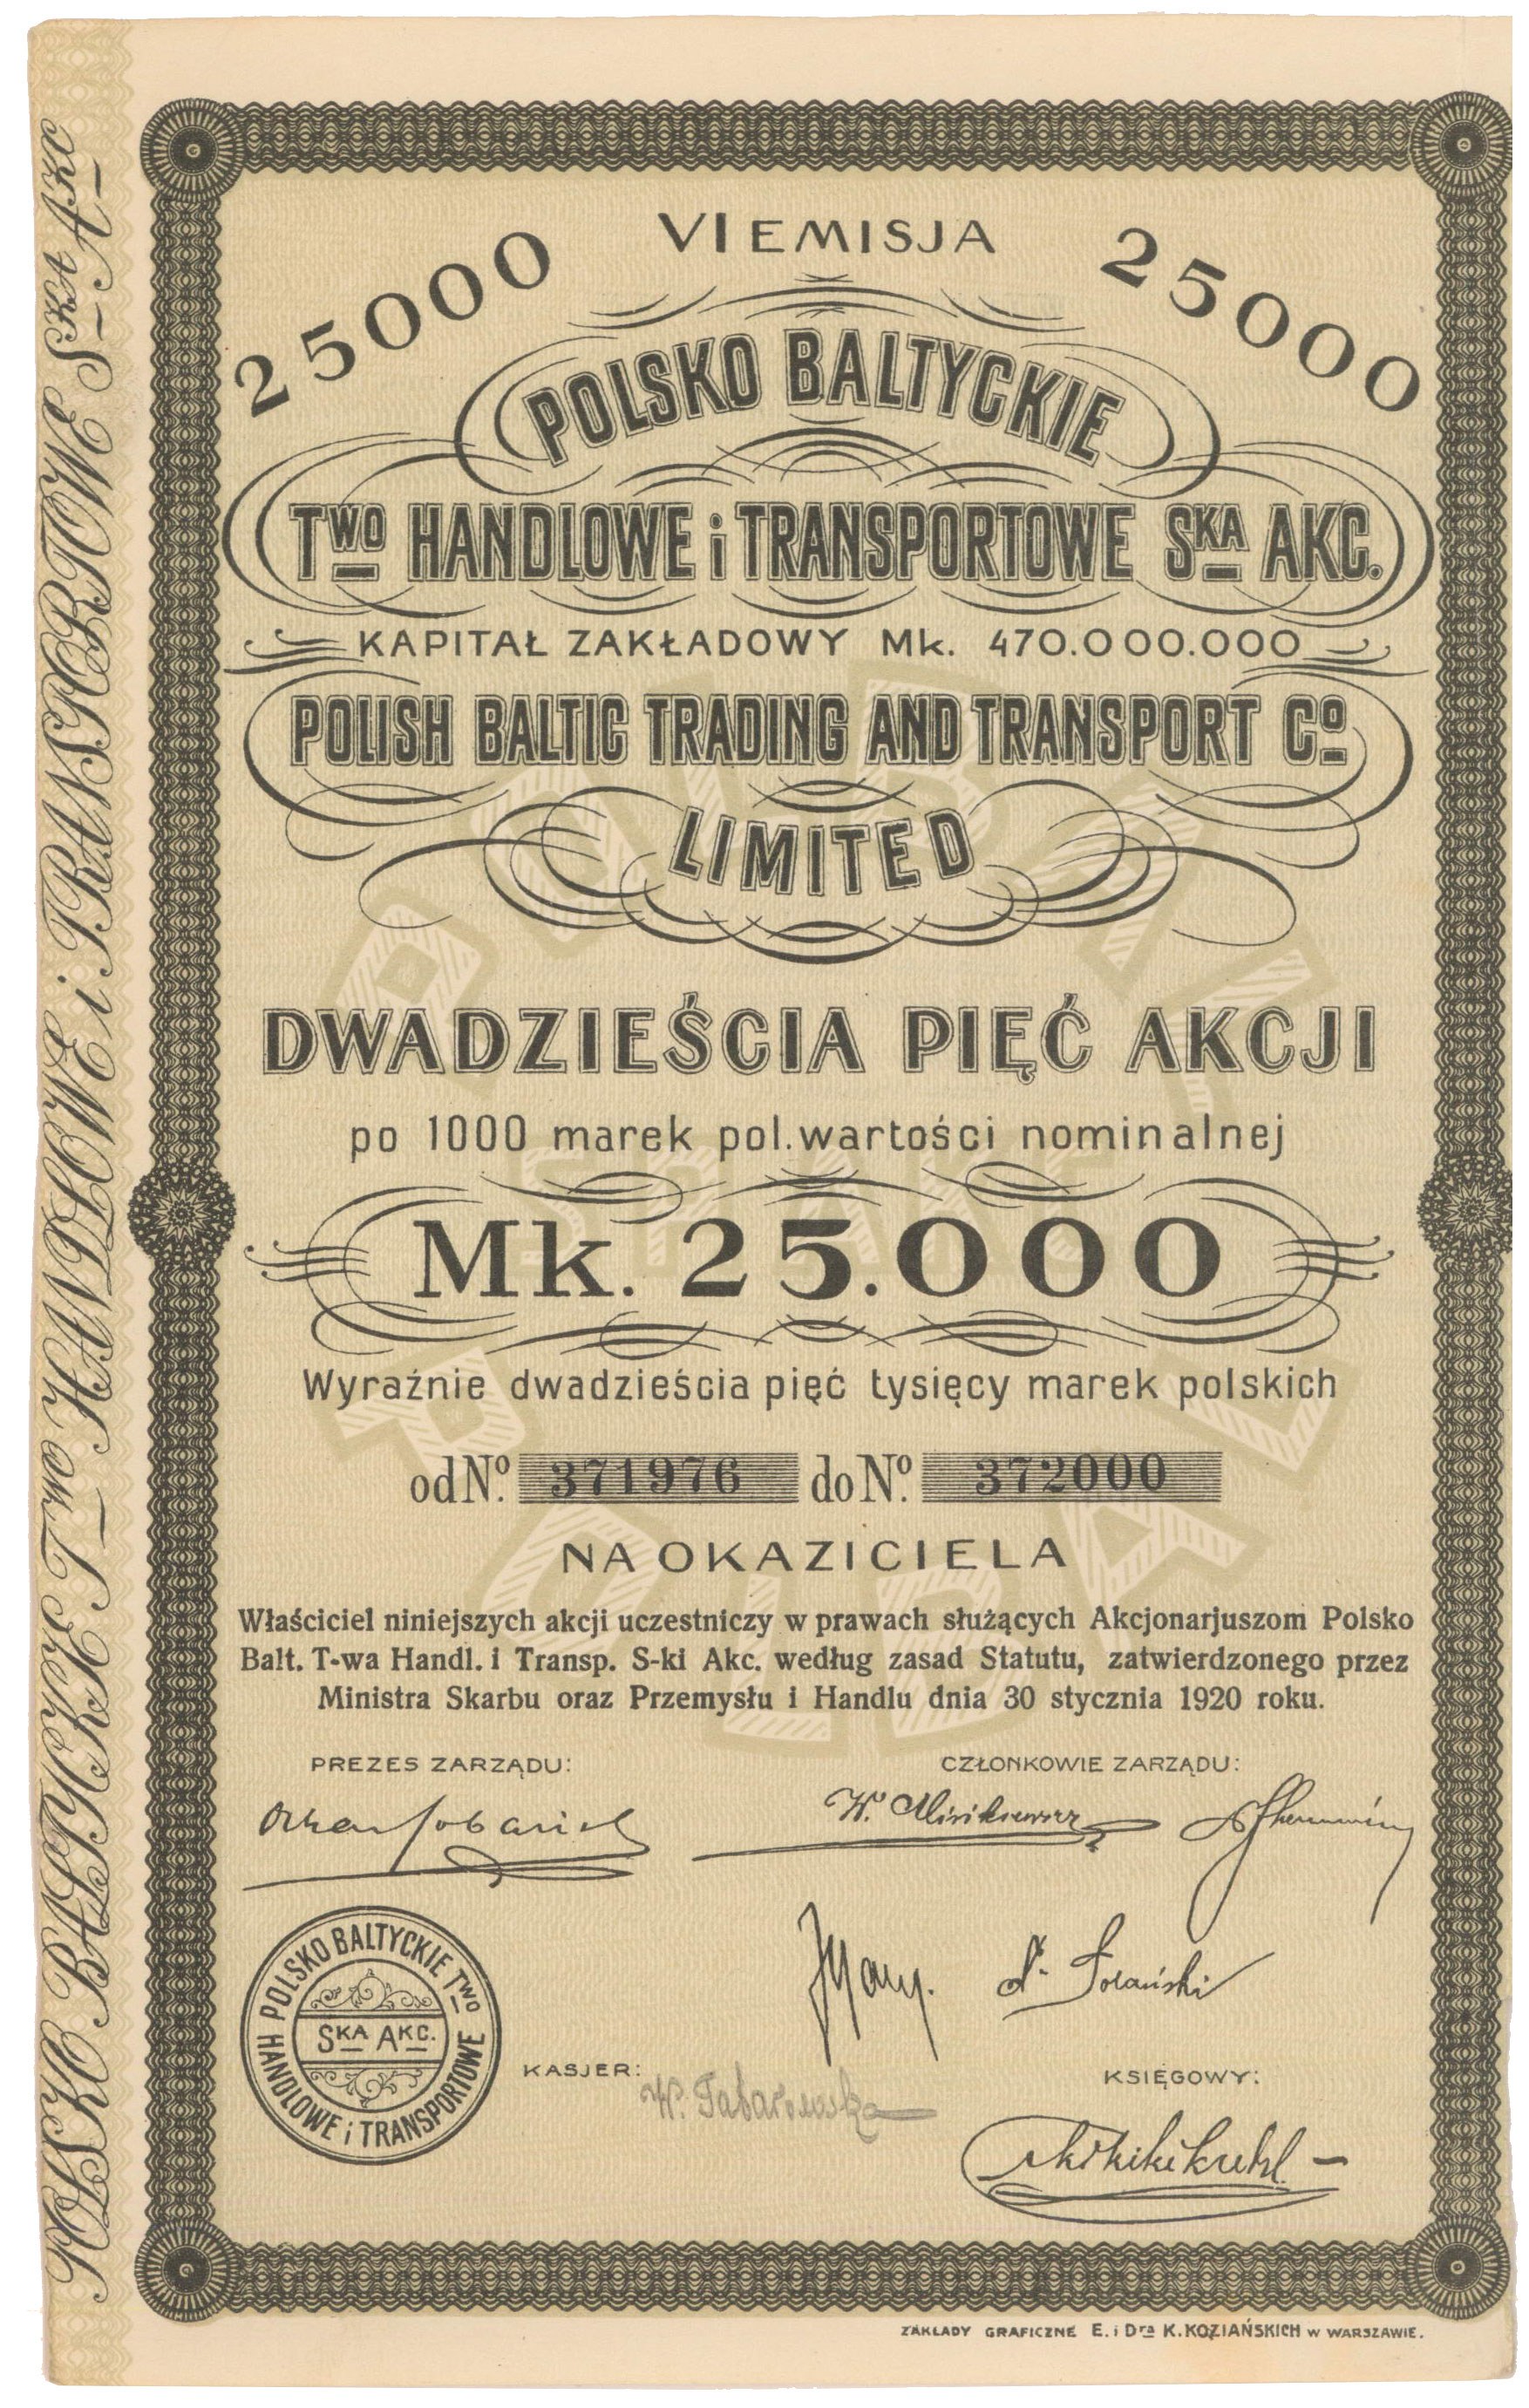 VI EMISJA
25000
25000
POLSKO BALTYCKIE
TWO HANDLOWE i TRANSPORTOWE SKA AKC.
KAPITAŁ ZAKŁADOWY Mk. 470.000.000
POLISH BALTIC TRADING AND TRANSPORT Co
LIMITED
DWADZIEŚCIA PIĘĆ AKCJI
po 1000 marek pol. wartości nominalnej
Mk. 25.000
Wyraźnie dwadzieścia pięć tysięcy marek polskich
od No. 371976 do No. 372000
NA OKAZICIELA
Właściciel niniejszych akcji uczestniczy w prawach służących Akcjonarjuszom Polsko
Balt. T-wa Handl. i Transp. S-ki Akc. według zasad Statutu, zatwierdzonego przez
Ministra Skarbu oraz Przemysłu i Handlu dnia 30 stycznia 1920 roku.
PREZES ZARZĄDU:
CZŁONKOWIE ZARZĄDU:
POLSKO BALTYCKIE TWO
HANDLOWE i TRANSPORTOWE
SKA AKC.
KASJER:
KSIĘGOWY:
ZAKŁADY GRAFICZNE E. i Dra K. KOZIAŃSKICH w WARSZAWIE.
POLSKO BALTYCKIE Two HANDLOWE i TRANSPORTOWE SKA AKC
POLBAL
SP. AKC.
POLBAL